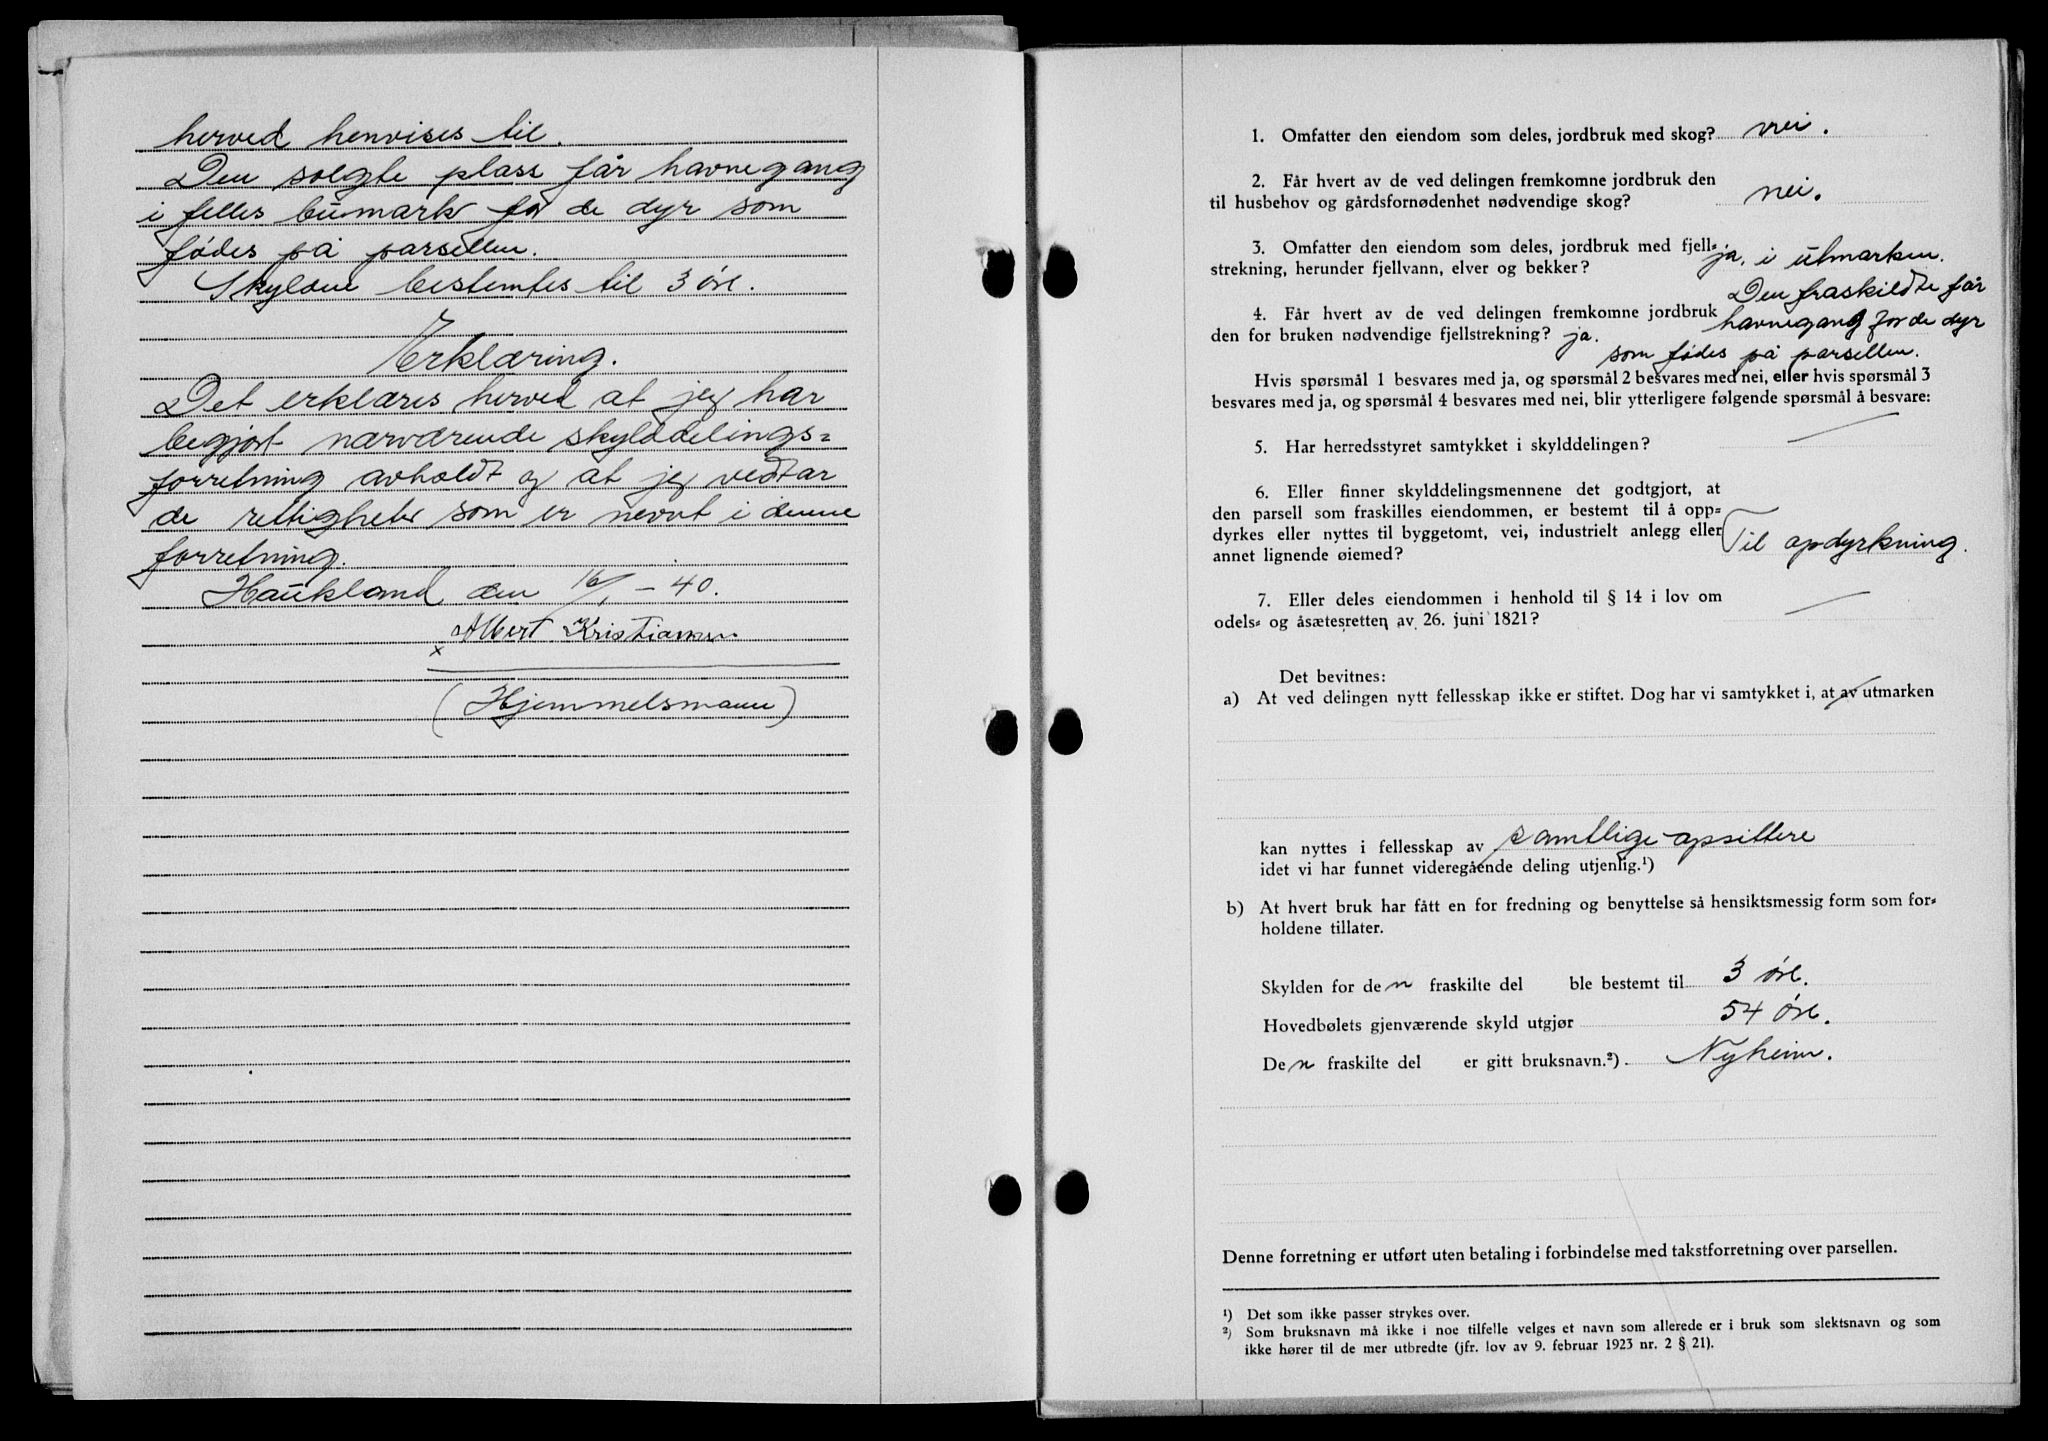 herved henvises til.
Den solgte plass får havnegang
i felles bumark for de dyr som
fødes på parsellen.
Skylden bestemtes til 3 øre.
Erklæring.
Det erklæres herved at jeg har
begjært nærværende skylddelings-
forretning avholdt og at jeg vedtar
de rettigheter som er nevnt i denne
forretning.
Haukland den 16/1 – 40.
Albert Kristiansen
x
(Hjemmelsmann)
1. Omfatter den eiendom som deles, jordbruk med skog? nei.
2. Får hvert av de ved delingen fremkomne jordbruk den
til husbehov og gårdsfornødenhet nødvendige skog? nei.
3. Omfatter den eiendom som deles, jordbruk med fjell-
strekning, herunder fjellvann, elver og bekker? ja, i utmarken.
Den fraskildte får
4. Får hvert av de ved delingen fremkomne jordbruk havnegang for de dyr
den for bruken nødvendige fjellstrekning? ja.
som fødes på parsellen.
Hvis spørsmål 1 besvares med ja, og spørsmål 2 besvares med nei, eller hvis spørsmål 3
besvares med ja, og spørsmål 4 besvares med nei, blir ytterligere følgende spørsmål å besvare:
5. Har herredsstyret samtykket i skylddelingen?
6. Eller finner skylddelingsmennene det godtgjort, at
den parsell som fraskilles eiendommen, er bestemt til å opp-
dyrkes eller nyttes til byggetomt, vei, industrielt anlegg eller
annet lignende øiemed? Til opdyrkning.
7. Eller deles eiendommen i henhold til § 14 i lov om
odels- og åsætesretten av 26. juni 1821?
Det bevitnes:
a) At ved delingen nytt fellesskap ikke er stiftet. Dog har vi samtykket i, at av utmarken
kan nyttes i fellesskap av samtlige opsittere
idet vi har funnet videregående deling utjenlig.¹)
b) At hvert bruk har fått en for fredning og benyttelse så hensiktsmessig form som for-
holdene tillater.
Skylden for den fraskilte del ble bestemt til 3 øre.
Hovedbølets gjenværende skyld utgjør 54 øre.
Den fraskilte del er gitt bruksnavn.²) Nyheim.
Denne forretning er utført uten betaling i forbindelse med takstforretning over parsellen.
¹) Det som ikke passer strykes over.
²) Som bruksnavn må ikke i noe tilfelle velges et navn som allerede er i bruk som slektsnavn og som
ikke hører til de mer utbredte (jfr. lov av 9. februar 1923 nr. 2 § 21).